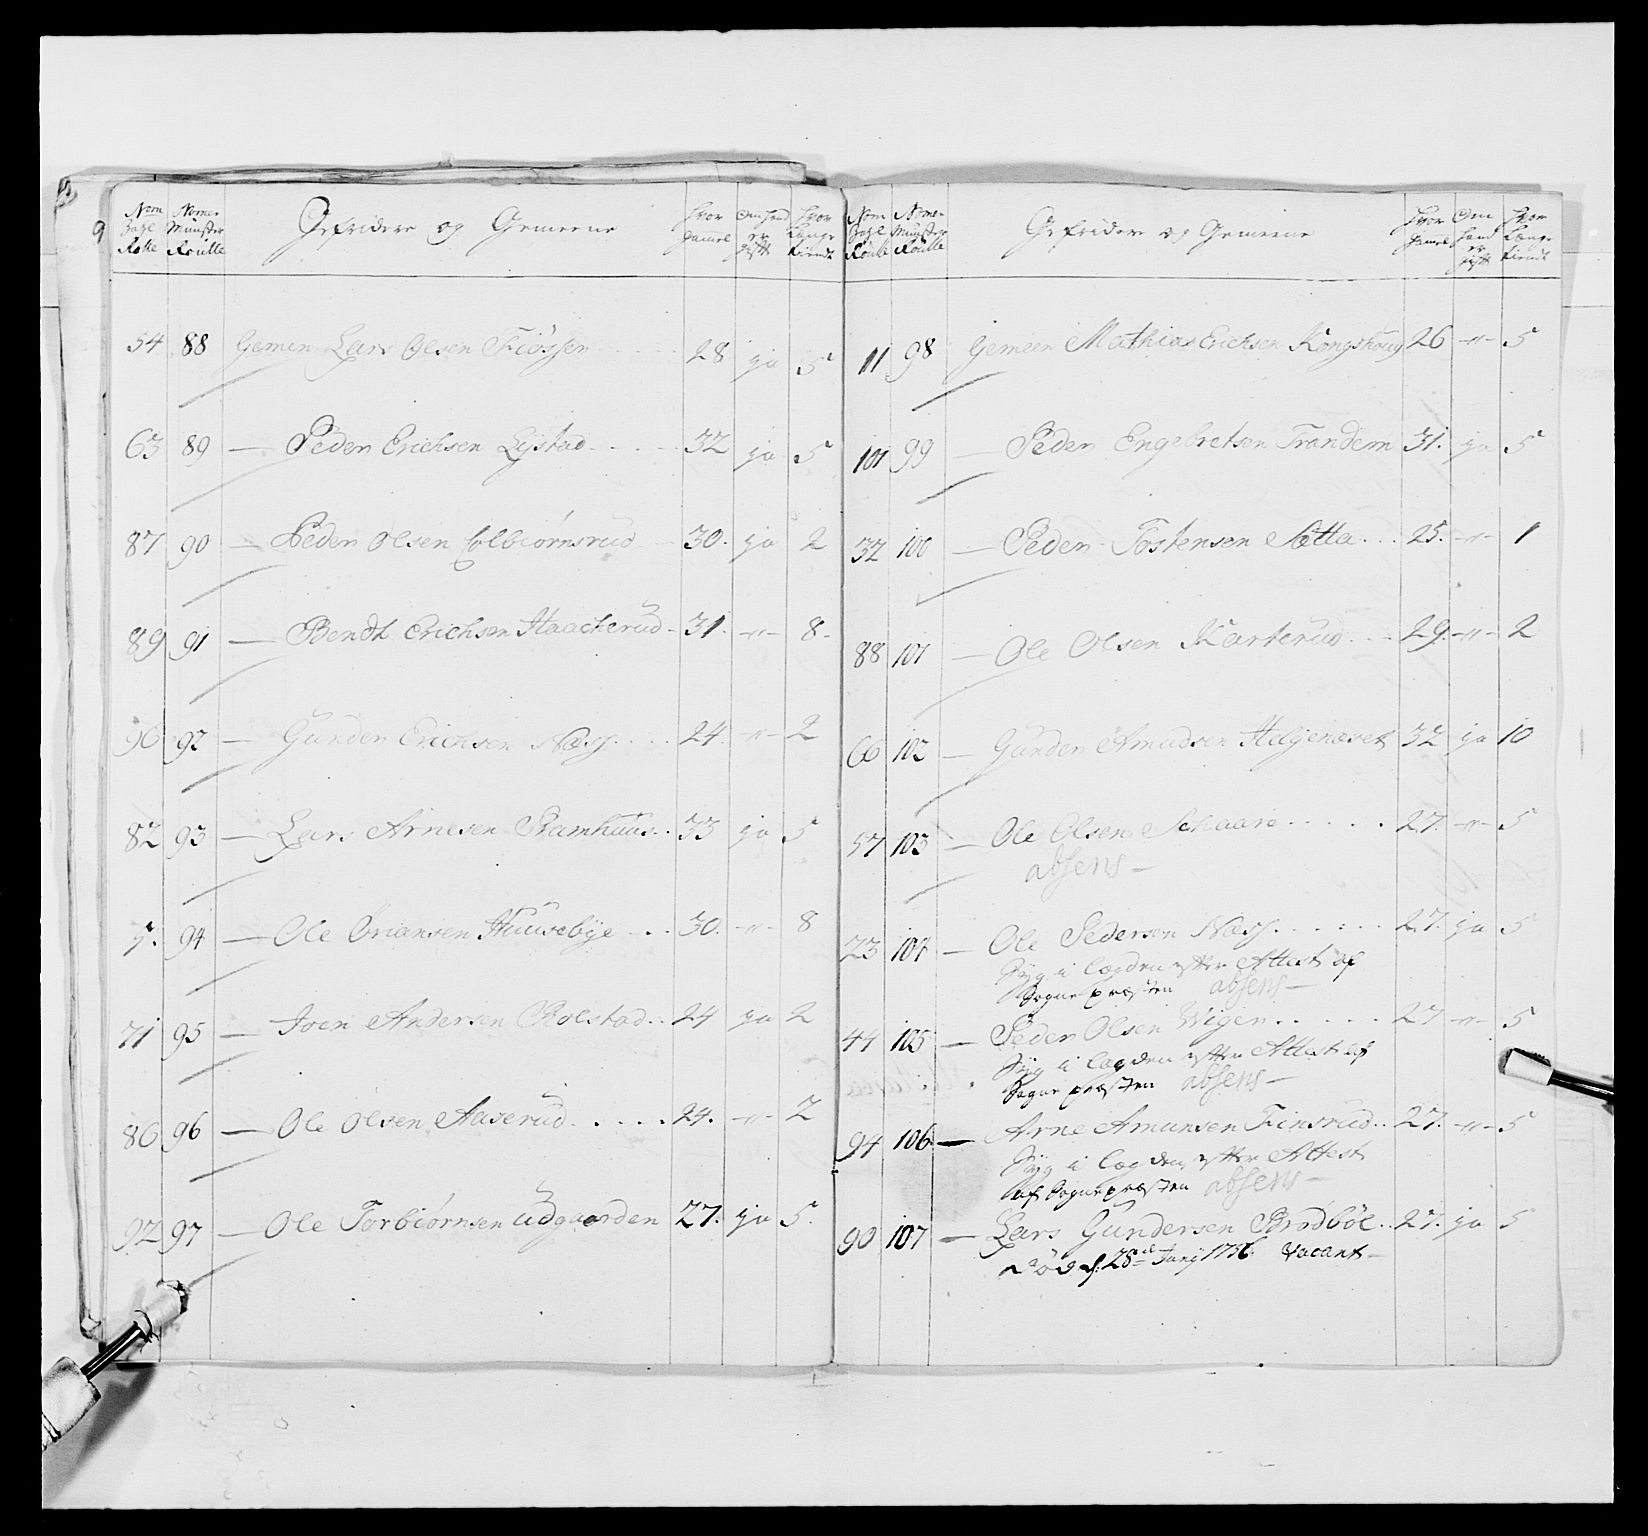 9
Nom Bahl Rolle | Nomer Munster Roulle | Gefridere og Gemeene | hvor gammel | Om hand er gift | hvor længe tiendt
54 88 Gemen Lars Olsen Fiösser 28 ja 5
63 89 — Peder Erichsen Lystad 32 ja 5
87 90 — Peder Olsen Colbiørnsrud 30. ja 2
89 91 — Bendt Erichsen Haacherud 31. -"- 8
90 92 — Gunder Erichsen Næss 24. -"- 2
82 93 — Lars Arnesen Ramhuus 33 ja 5
5. 94 — Ole Öriansen Huusebÿe 30. -"- 8
71 95 — Joen Andersen Rolstad 24 ja 2
86 96 — Ole Olsen Aaserud 24. -"- 2
92 97 — Ole Torbiörnsen Udgaarden 27. ja 5
Nom Bahl Roulle | Nomer Munster Roulle | Gefridere og Gemeene | hvor gamel | Om hand er gift | hvor længe tiendt
11 98 Gemeen Mathias Erichsen Kongshoug 26 -"- 5
101 99 — Peder Engebretsen Trandem 31. ja 5
32 100 — Peder Tostensen Sætta 25. -"- 1
88 101 — Ole Olsen Karterud 29. -"- 2
66 102 — Gunder Amudsen Helgeneset 32 ja 10
57 103 — Ole Olsen Schaare 27. -"- 5
absens —
23 104 — Ole Pedersen Næss 27. ja 5
Syg i Lægden efter Attest af
Sogne præsten absens —
44 105 — Peder Olsen Wigen 27 -"- 5
Syg i Lægden efter Attest af
Sogne præsten absens —
94 106 — Arne Amunsen Finsrud 27. -"- 5
Syg i Lægden efter Attest
af Sognepræsten absens —
90 107 — Lars Gundersen Brodböl 27. ja 5
Död d: 28de Junÿ 1756. Vacant —